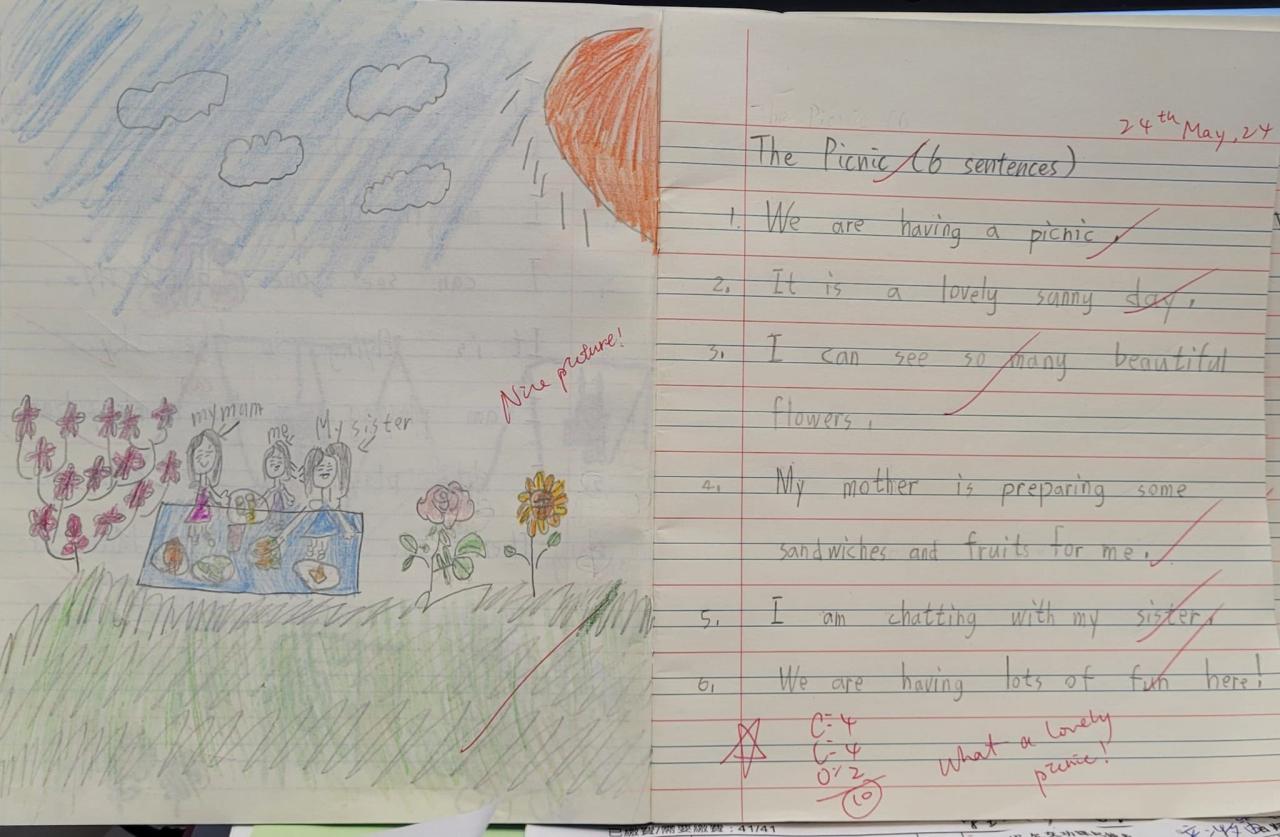 my mam
me
My sister
Nice picture!
24th May, 24
The Picnic (6 sentences)
1. We are having a picnic.
2. It is a lovely sunny day.
3. I can see so many beautiful
flowers.
4. My mother is preparing some
sandwiches and fruits for me.
5. I am chatting with my sister.
6. We are having lots of fun here!
C=4
C=4
O=2
10
What a lovely
picnic!
41/41